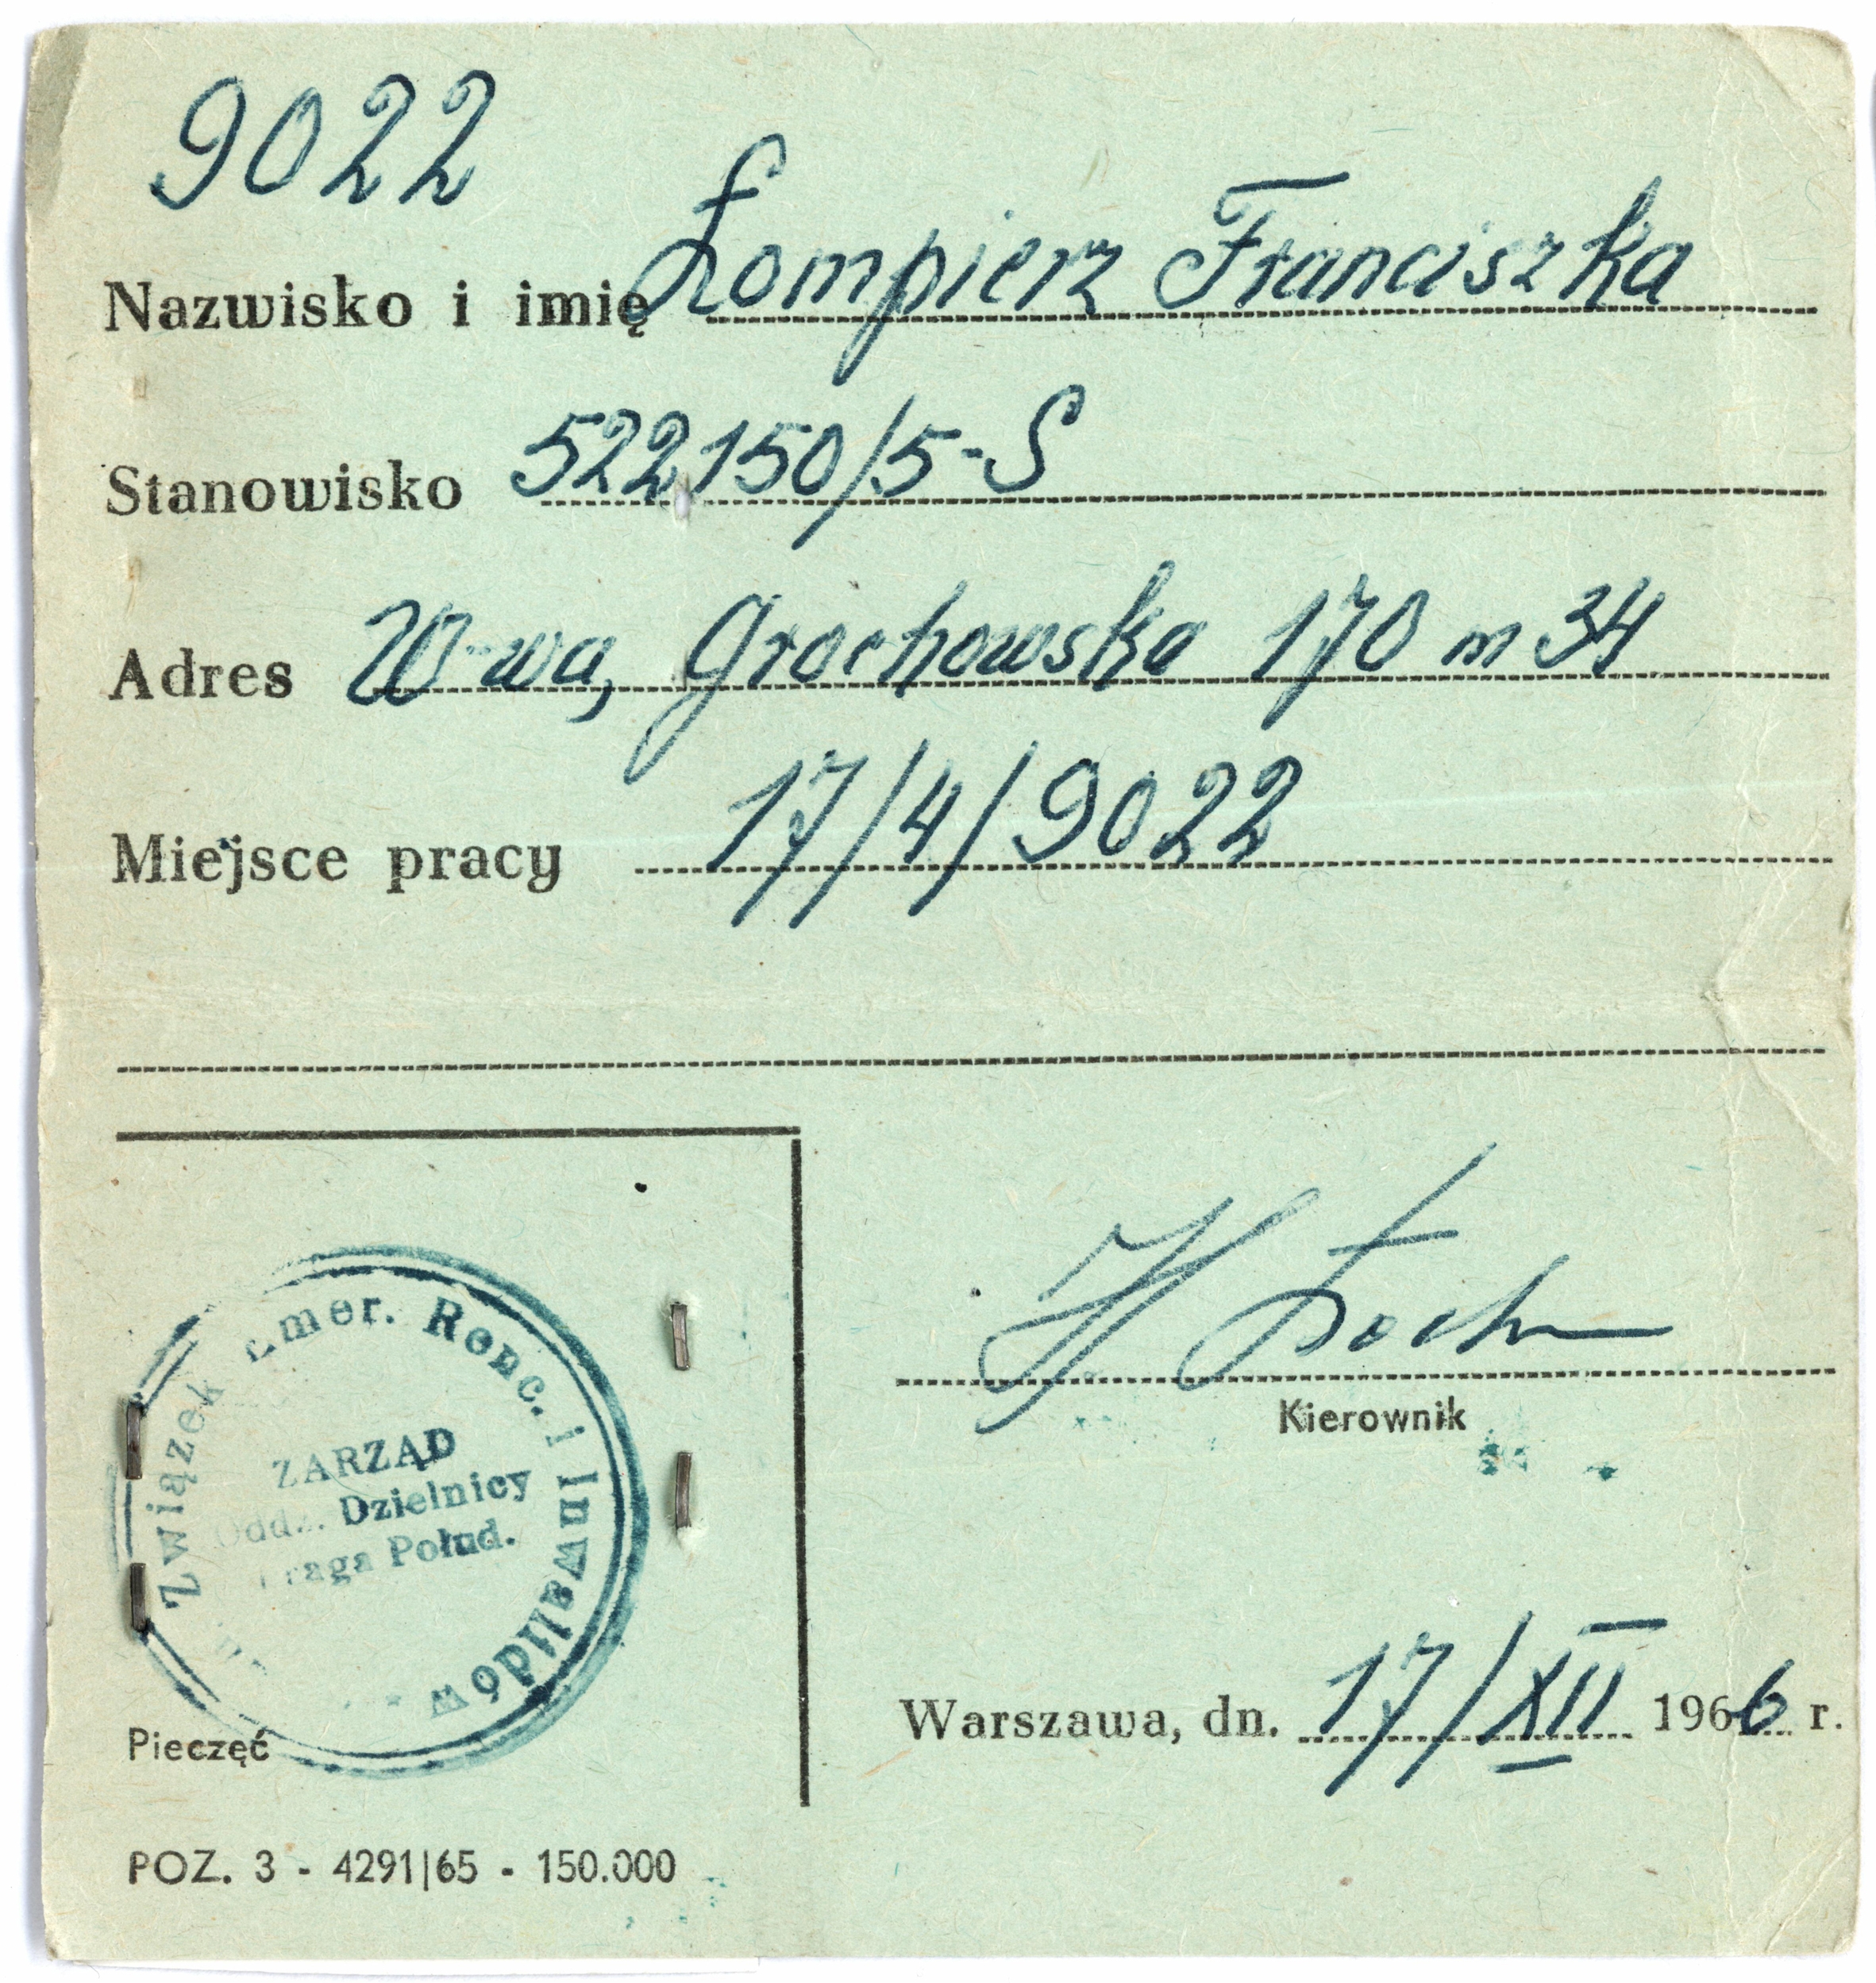 9022
Nazwisko i imię Łompierz Franciszka
Stanowisko 522150/5-S
Adres W-wa, Grochowska 170 m 34
Miejsce pracy 17/4/9022
Związek Emer. Renc. i Inwalidów
ZARZĄD
Oddz. Dzielnicy
Praga Połud.
Kierownik
Warszawa, dn. 17/XII 1966 r.
Pieczęć
POZ. 3 - 4291|65 - 150.000